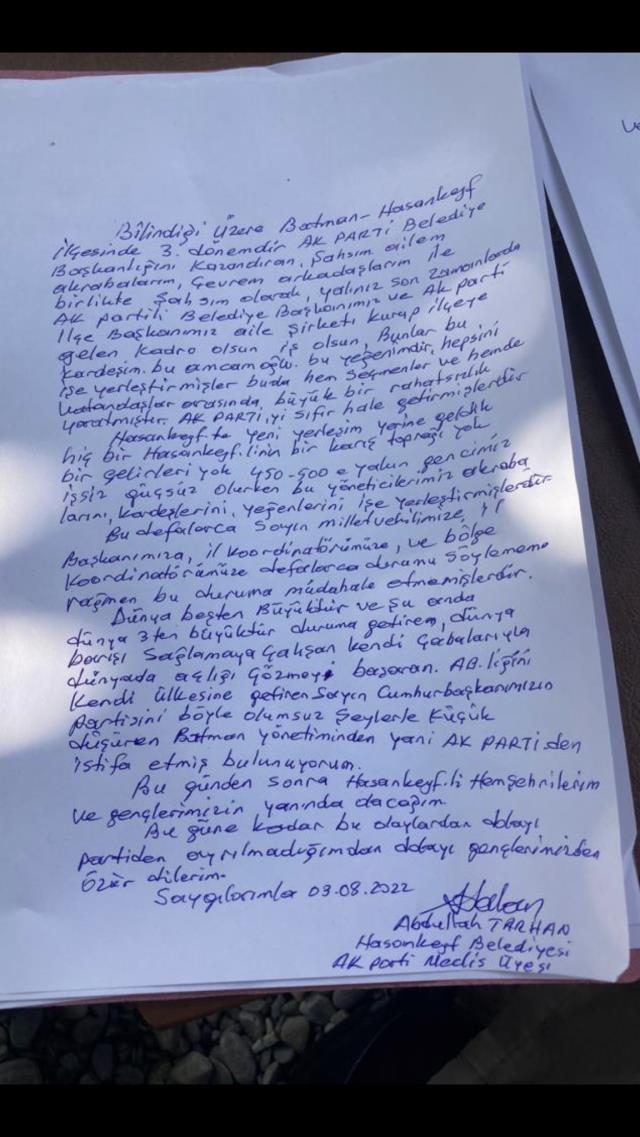 Bilindiği üzere Batman-Hasankeyf
ilçesinde 3. dönemdir AK PARTİ Belediye
Başkanlığını Kazandıran, Şahsım ailem
akrabalarım, Çevrem arkadaşlarım ile
birlikte Şahsım olarak, yalınız son zamanlarda
AK partili Belediye Başkanımız ve AK parti
İlçe Başkanımız aile Şirketi kurup ilçeye
gelen kadro olsun iş olsun, Bunlar bu
kardeşim. bu amcamoğlu. bu yeğenimdir. hepsini
işe yerleştirmişler buda hem Seçmenler ve hemde
Vatandaşlar arasında, büyük bir rahatsızlık
yaratmıştır. AK PARTİ,yi Sıfır hale getirmişlerdir
Hasankeyf.te yeni yerleşim yerine geldik
hiç bir Hasankeyf.linin bir karış toprağı yok
bir gelirleri yok 450-500 e yakın gencimiz
işsiz güçsüz olurken bu yöneticilerimiz akraba
larını, kardeşlerini, yeğenlerini işe yerleştirmişlerdir.
Bu defalarca Sayın milletvekilimize, il
Başkanımıza, il koordinatörümüze, ve bölge
Koordinatörümüze defalarca durumu Söylememe
rağmen bu duruma müdahale etmemişlerdir.
Dünya beşten Büyüktür ve Şu anda
dünya 3ten büyüktür duruma getiren, dünya
barışı Sağlamaya Çalışan kendi Çabalarıyla
dünyada açlığı Çözmeyi başaran. AB.liğini
kendi ülkesine getiren Sayın Cumhurbaşkanımızın
partisini böyle olumsuz Şeylerle Küçük
düşüren Batman yönetiminden yani AK PARTİ.den
istifa etmiş bulunuyorum.
Bu günden sonra Hasankeyf.li Hemşehrilerim
ve gençlerimizin yanında olacağım.
Bu güne kadar bu olaylardan dolayı
partiden ayrılmadığımdan dolayı gençlerimizden
Özür dilerim.
Saygılarımla 03.08.2022
Abdullah TARHAN
Hasankeyf Belediyesi
AK parti Meclis Üyesi